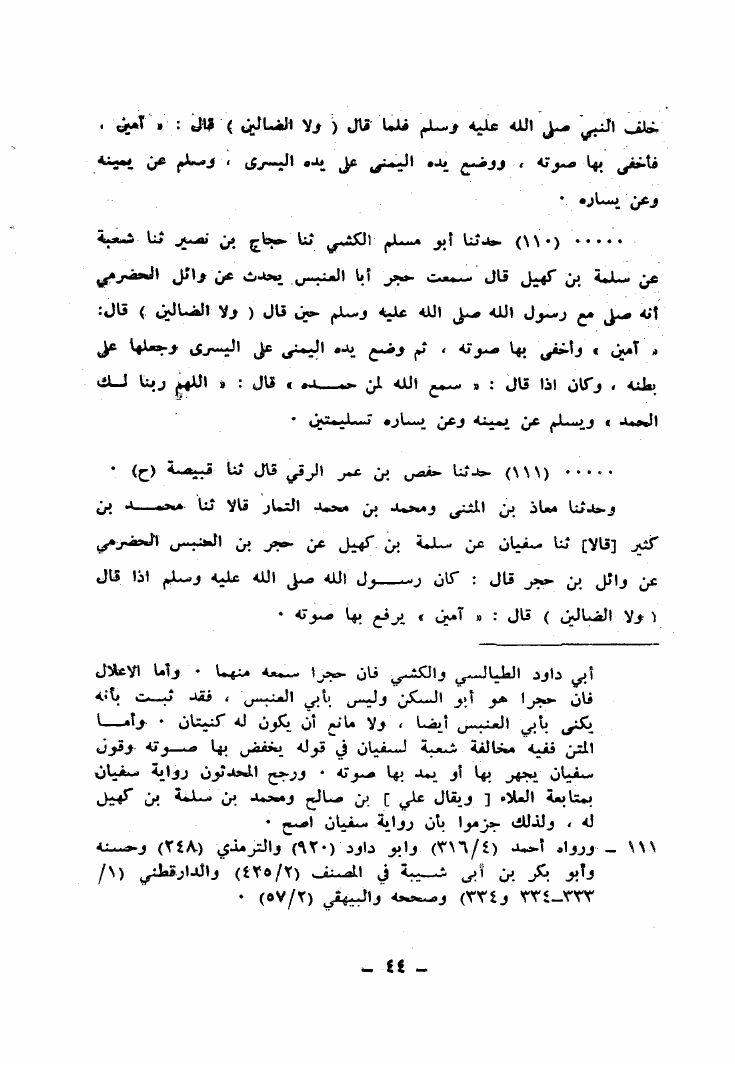 خلف النبي صلى الله عليه وسلم فلما قال ( ولا الضالين ) قال : « آمين ،
فأخفى بها صوته ، ووضع يده اليمنى على يده اليسرى ، وسلم عن يمينه
وعن يساره ٠
٠٠٠٠٠ (١١٠) حدثنا أبو مسلم الكشي ثنا حجاج بن نصير ثنا شعبة
عن سلمة بن كهيل قال سمعت حجر أبا العنبس يحدث عن وائل الحضرمي
أنه صلى مع رسول الله صلى الله عليه وسلم حين قال ( ولا الضالين ) قال:
« آمين » وأخفى بها صوته ، ثم وضع يده اليمنى على اليسرى وجعلها على
بطنه ، وكان اذا قال : « سمع الله لمن حمـــده » قال : « اللهم ربنا لــك
الحمد » ويسلم عن يمينه وعن يساره تسليمتين ٠
٠٠٠٠٠ (١١١) حدثنا حفص بن عمر الرقي قال ثنا قبيصة (ح) ٠
وحدثنا معاذ بن المثنى ومحمد بن محمد التمار قالا ثنا محمـــد بن
كثير [قالا] ثنا سفيان عن سلمة بن كهيل عن حجر بن العنبس الحضرمي
عن وائل بن حجر قال : كان رســـول الله صلى الله عليه وسلم اذا قال
( ولا الضالين ) قال : « آمين » يرفع بها صوته ٠
أبي داود الطيالسي والكشي فان حجرا سمعه منهما ٠ وأما الاعلال
فان حجرا هو أبو السكن وليس بأبي العنبس ، فقد ثبــت بأنه
يكنى بأبي العنبس أيضا ، ولا مانع أن يكون له كنيتان ٠ وأمــا
المتن ففيه مخالفة شعبة لسفيان في قوله يخفض بها صــوته وقول
سفيان يجهر بها أو يمد بها صوته ٠ ورجح المحدثون رواية سفيان
بمتابعة العلاء [ ويقال علي ] بن صالح ومحمد بن سلمة بن كهيل
له ، ولذلك جزموا بأن رواية سفيان اصح ٠
١١١ ــ ورواه أحمد (٣١٦/٤) وابو داود (٩٢٠) والترمذي (٢٤٨) وحسنه
وأبو بكر بن أبى شــيبة في المصنف (٤٢٥/٢) والدارقطني (١/
٣٣٣ــ٣٣٤ و٣٣٤) وصححه والبيهقي (٥٧/٢) ٠
ــ ٤٤ ــ